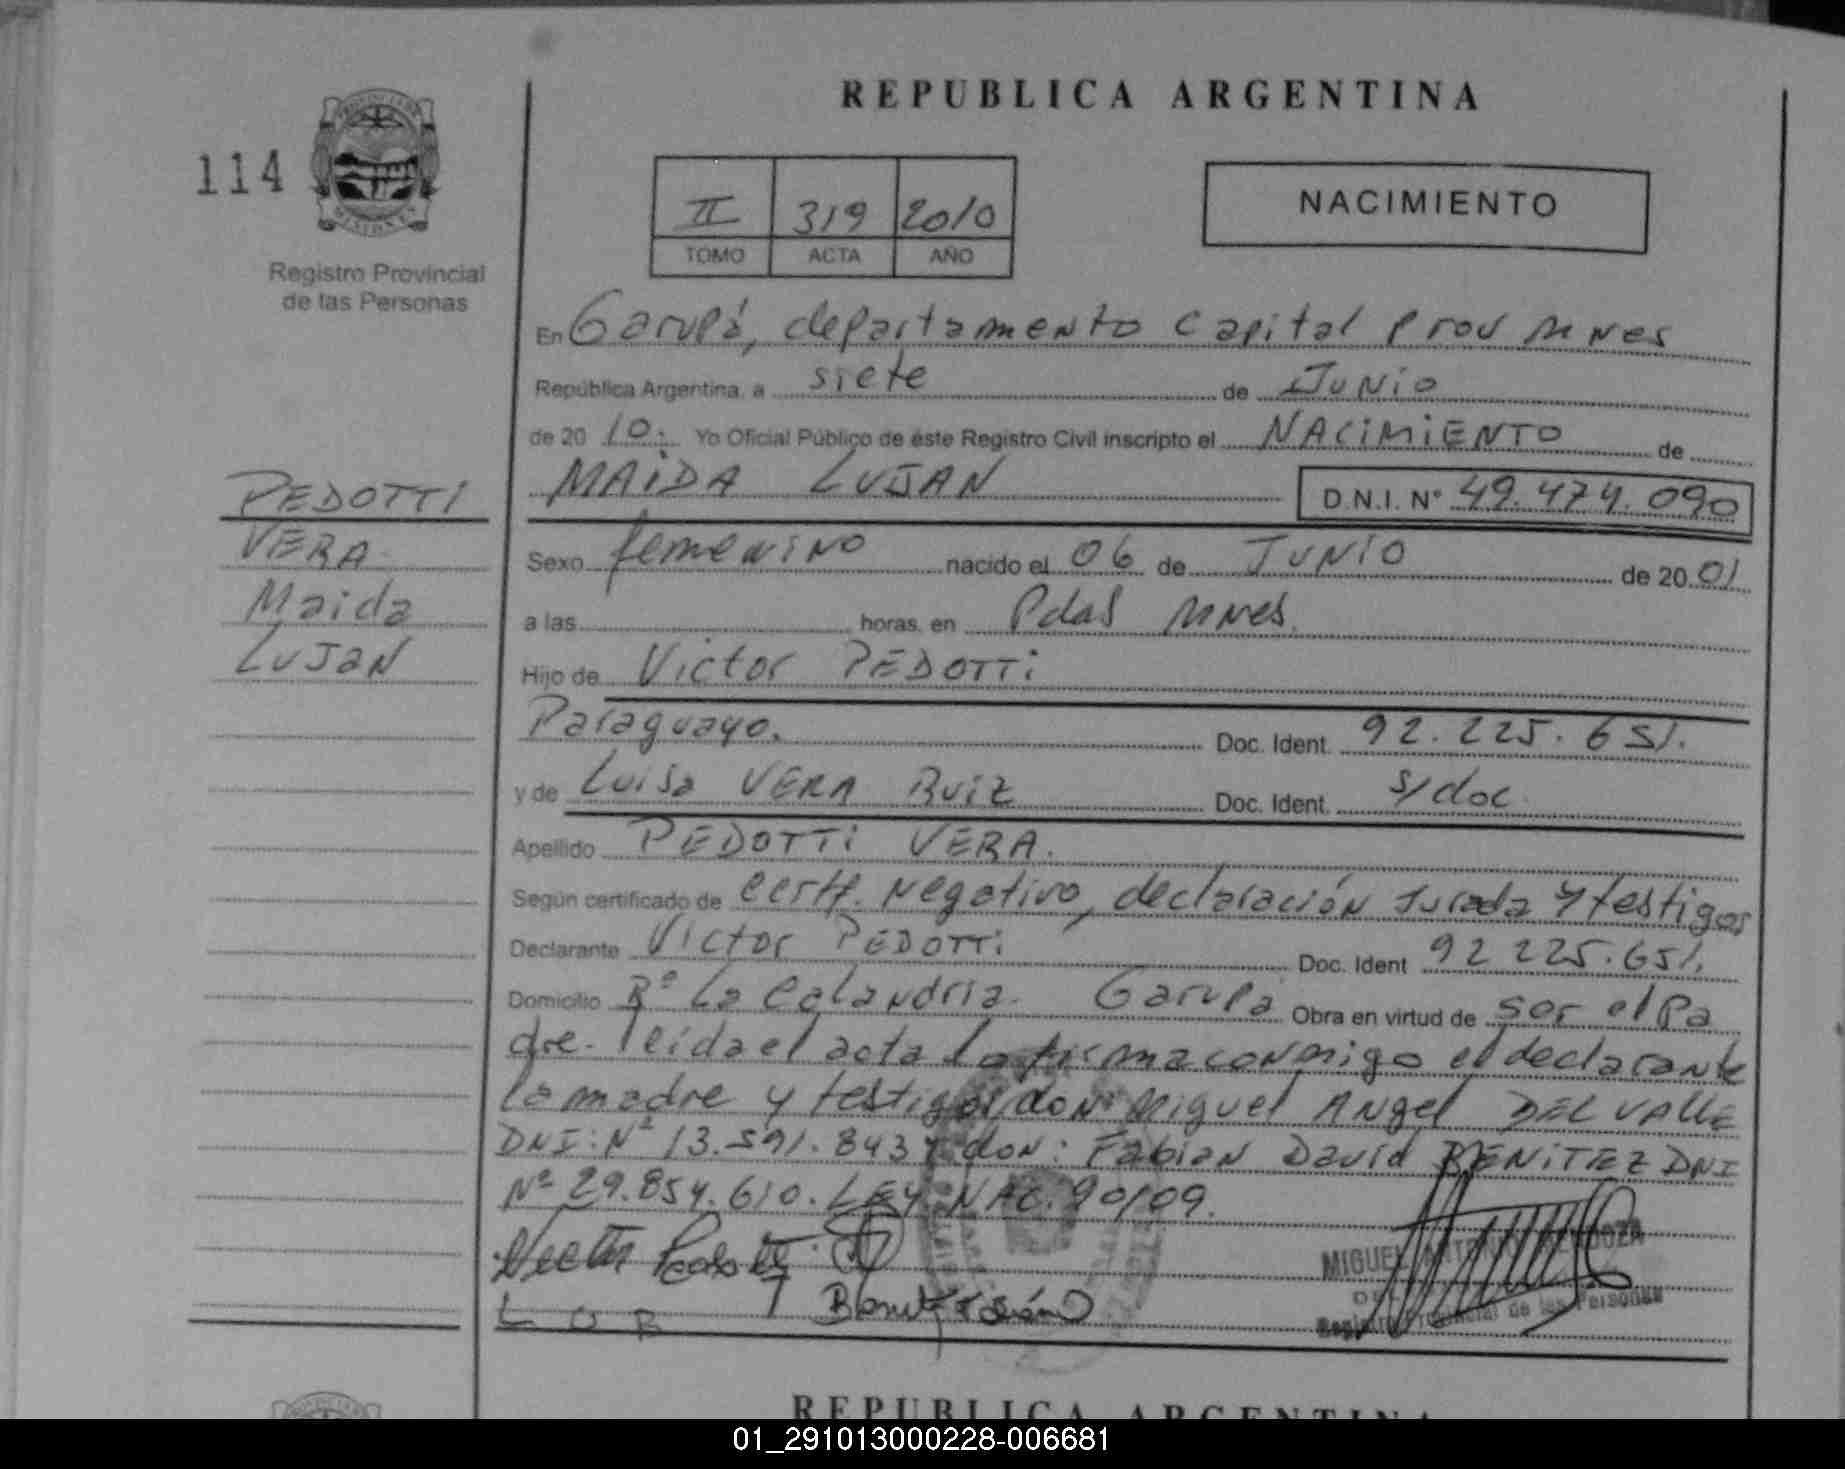 REPUBLICA ARGENTINA
114
II 319 2010
TOMO ACTA AÑO
NACIMIENTO
Registro Provincial
de las Personas
En Garupá, departamento Capital Prov Mnes
República Argentina, a siete de Junio
de 2010. Yo Oficial Público de éste Registro Civil inscripto el NACIMIENTO de
MAIDA LUJAN D.N.I. N° 49.474.090
PEDOTTI
VERA
Maida
LuJaN
Sexo femenino nacido el 06 de JUNIO de 2001
a las horas, en Pdas Mnes.
Hijo de Victor PEDOTTi
Paraguayo. Doc. Ident. 92.225.651.
y de Luisa VERA Ruiz Doc. Ident. s/doc.
Apellido PEDOTTi VERA.
Según certificado de certf. Negativo, declaración Jurada y testigos
Declarante Victor PEDOTTi Doc. Ident 92 225.651.
Domicilio Bº La Calandria. Garupá Obra en virtud de ser el Pa
dre. leida el acta la firma conmigo el declarante
la madre y testigos don Miguel Angel DEL VALLE
DNI: Nº 13.591.843 y don: Fabian David BENITEZ DNI
Nº 29.854.610. LEY NAC. 90/09.
Victor Pedotti
L O R
MIGUEL ANTONIO MENDOZA
Registro Provincial de las Personas
REPUBLICA ARGENTINA
01_291013000228-006681